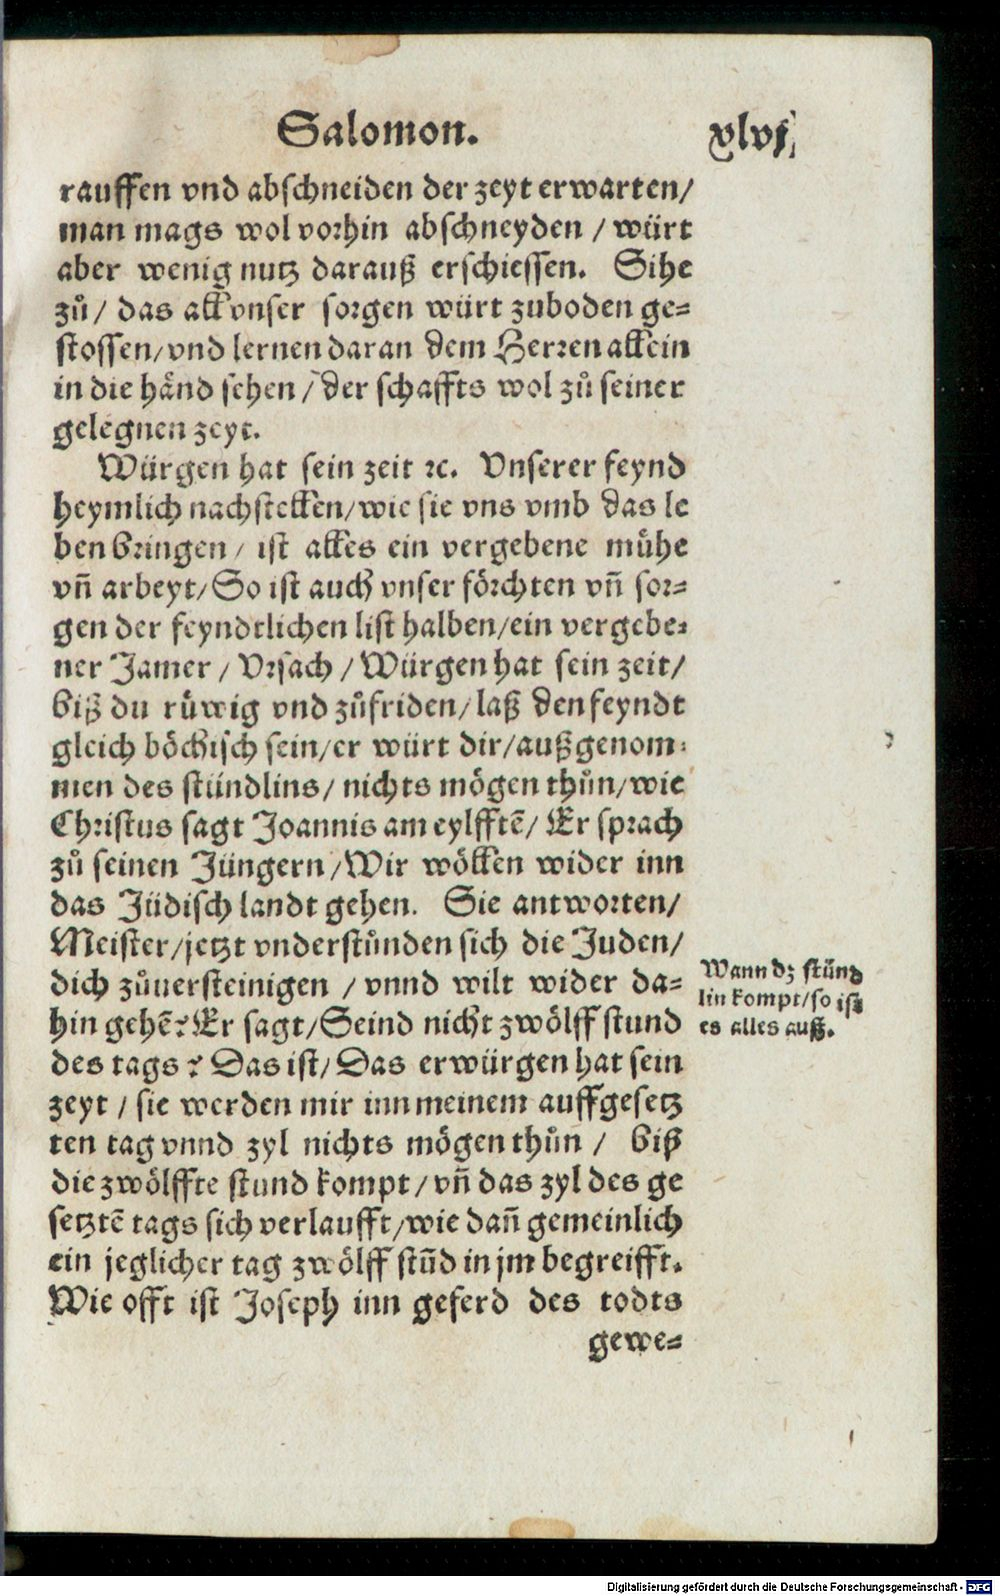 Salomon. xlvj
rauffen vnd abschneiden der zeyt erwarten/
man mags wol vorhin abschneyden / würt
aber wenig nutz darauß erschiessen. Sihe
zů/ das all vnser sorgen würt zuboden ge-
stossen/ vnd lernen daran dem Herren allein
in die hånd sehen/ der schaffts wol zů seiner
gelegnen zeyt.
Würgen hat sein zeit ꝛc. Vnserer feynd
heymlich nachstellen/ wie sie vns vmb das le
ben bringen/ ist alles ein vergebene mühe
vñ arbeyt/ So ist auch vnser förchten vñ sor-
gen der feyndtlichen list halben/ ein vergebe-
ner Jamer / Vrsach / Würgen hat sein zeit/
biß du rüwig vnd zůfriden/ laß den feyndt
gleich böchisch sein/ er würt dir/ außgenom-
men des stündlins/ nichts mögen thůn/ wie
Christus sagt Joannis am eylfftē/ Er sprach
zů seinen Jüngern/ Wir wöllen wider inn
das Jüdisch landt gehen. Sie antworten/
Meister/ jetzt vnderstůnden sich die Juden/
dich zůuersteinigen / vnnd wilt wider da-
hin gehē? Er sagt/ Seind nicht zwölff stund
des tags? Das ist/ Das erwürgen hat sein
zeyt / sie werden mir inn meinem auffgesetz
ten tag vnnd zyl nichts mögen thůn / biß
die zwölffte stund kompt/ vñ das zyl des ge
setztē tags sich verlaufft/ wie dañ gemeinlich
ein jeglicher tag zwölff stūd in jm begreifft.
Wie offt ist Joseph inn geferd des todts
gewe-
Wann dz stünd
lin kompt/ so ist
es alles auß.
Digitalisierung gefördert durch die Deutsche Forschungsgemeinschaft - DFG